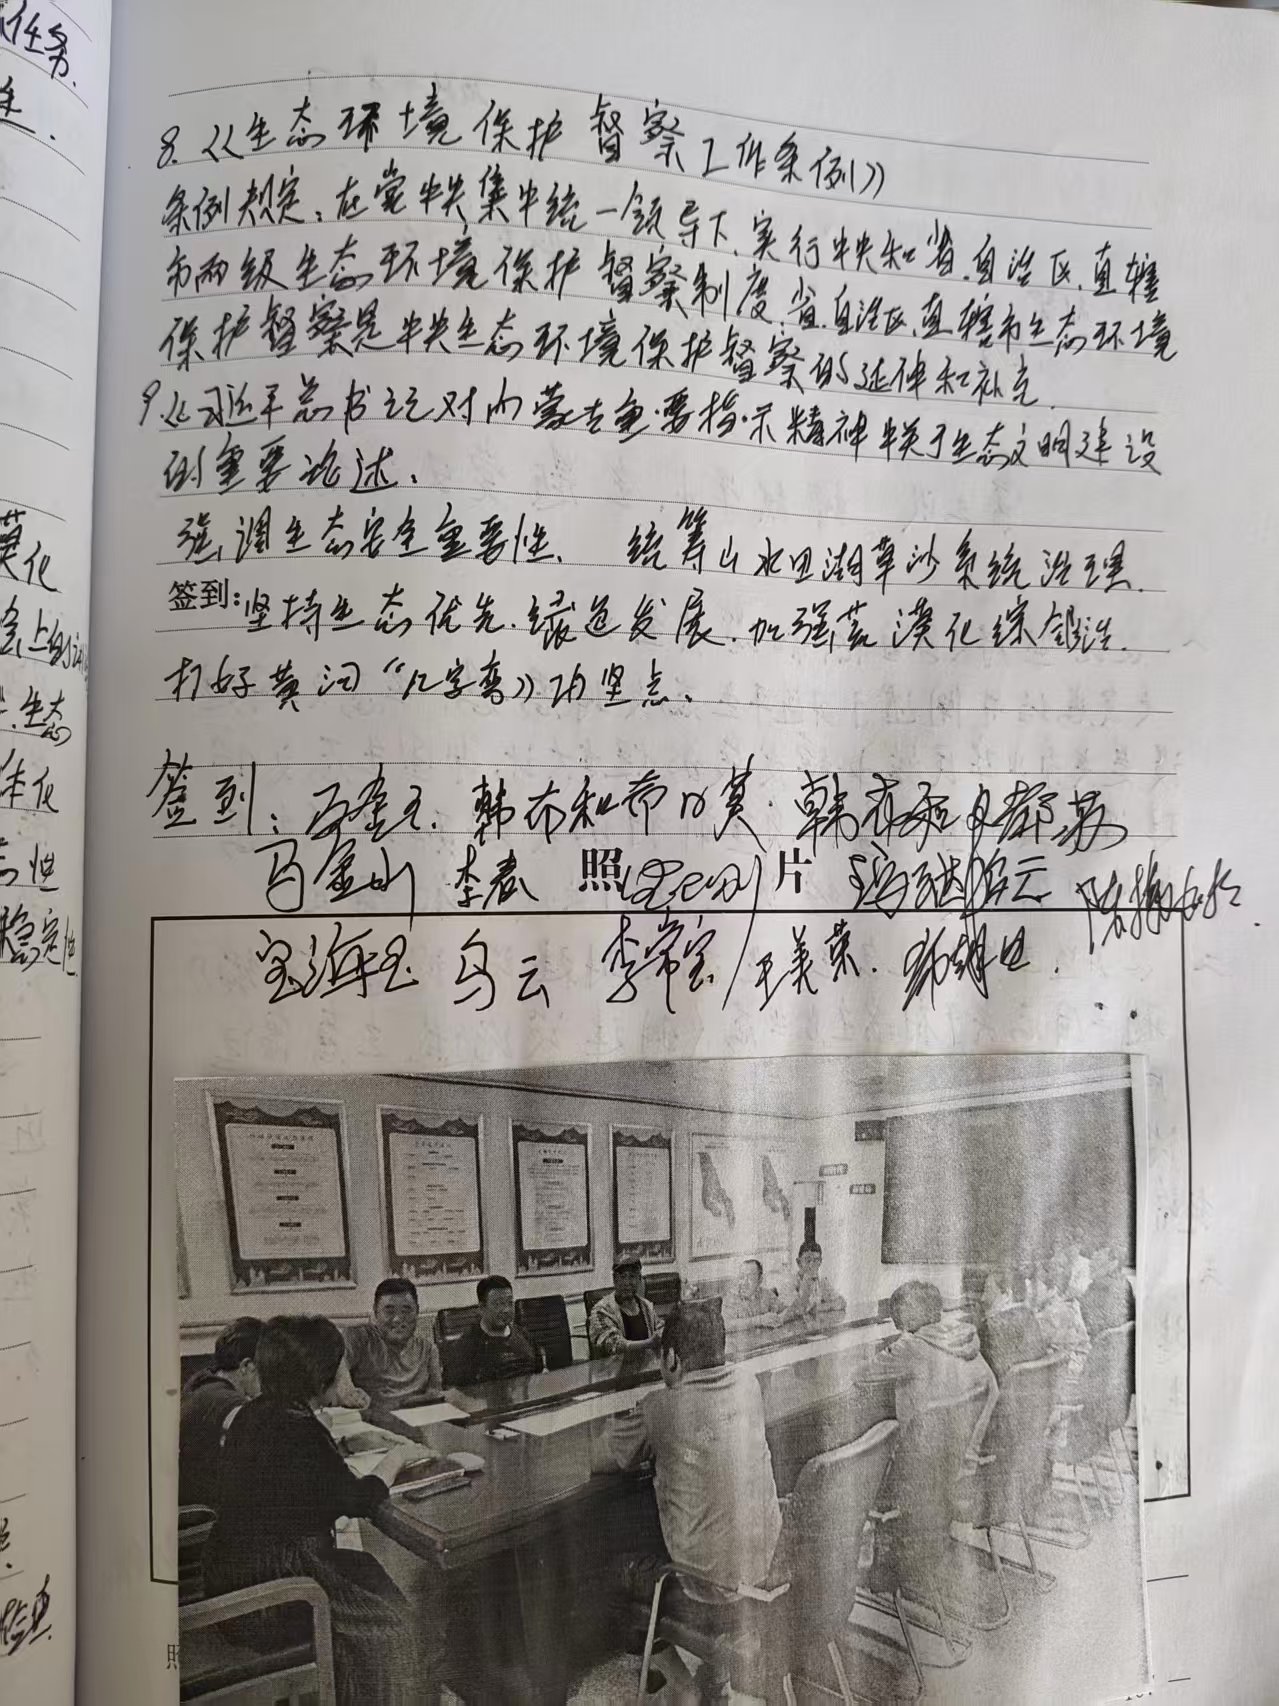 任务.
8.《生态环境保护督察工作条例》
条例规定:在党中央集中统一领导下,实行中央和省.自治区.直辖
市两级生态环境保护督察制度,省.自治区.直辖市生态环境
保护督察是中央生态环境保护督察的延伸和补充.
9.《习近平总书记对内蒙古重要指示精神中关于生态文明建设
的重要论述.
强调生态安全重要性、 统筹山水田湖草沙系统治理.
签到:坚持生态优先.绿色发展.加强荒漠化综合治.
打好黄河“几字弯》功坚点.
签到: 韩布和
马金山 李春 照 片
宝海玉 乌云 李常宝 王美荣.
漠化
生态
体化
稳定性